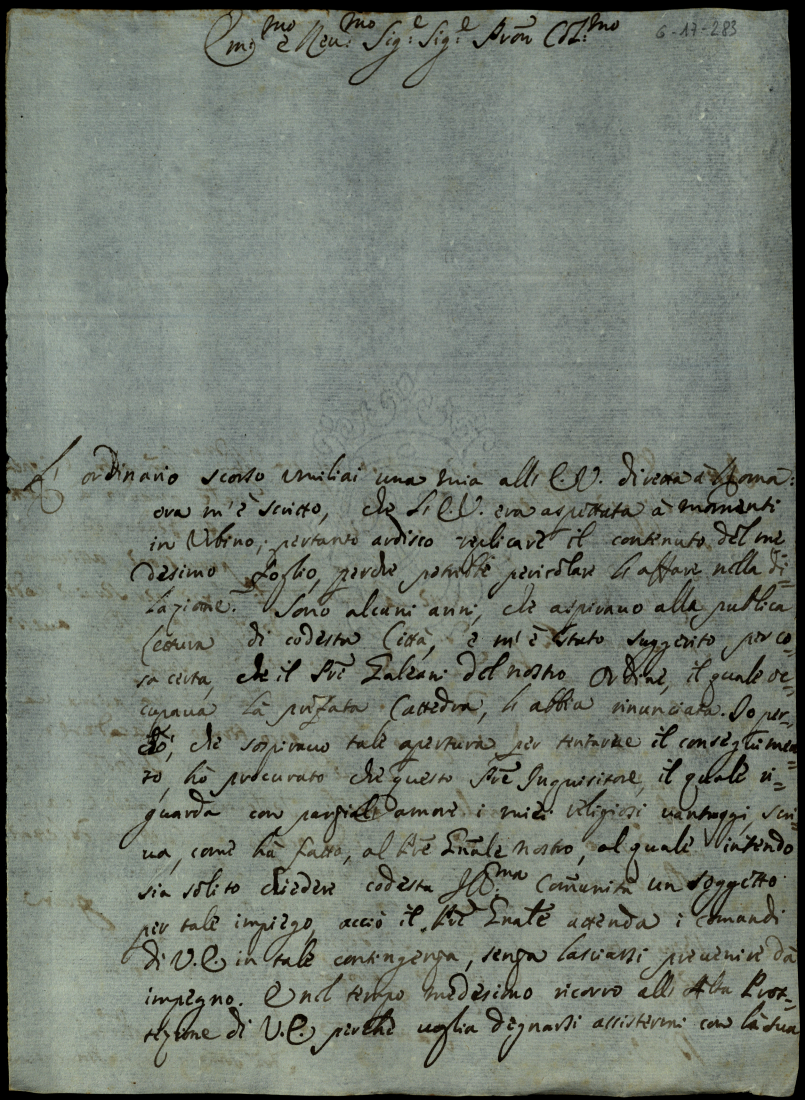 Em:mo e Reu:mo Sig:e Sig:e Pron Col:mo
6-17-283
L' ordinario scorso umiliai una mia all' E.V. diretta à Roma:
ora m'è scritto, che l'E.V. era aspettata à momenti
in Urbino; pertanto ardisco replicare il contenuto del me
desimo Foglio, perche potrebbe pericolare l'affare nella di=
lazione. Sono alcuni anni, che aspiravo alla publica
Lettura di codesta Città, e m'è stato suggerito per co=
sa certa, che il Pre Galeani del nostro Ordine, il quale oc=
cupava la prefata Cattedra, l'abbia rinunciata. Io per=
ciò, che sospiravo tale apertura per tentarne il conseguimen=
to, hò procurato che questo Pre Inquisitore, il quale ri=
guarda con parziale amore i miei religiosi vantaggi, scri=
va, come hà fatto, al Pre Gnãle nostro, al quale intendo
sia solito chiedere codesta Ill:ma Comunità un soggetto
per tale impiego, acciò il Pre Gnãle attenda i comandi
di V.E. in tale contingenza, senza lasciarsi prevenire da
impegno. E nel tempo medesimo ricorro all'Alta Prot=
tezione di V.E. perche voglia degnarsi assistermi con la sua